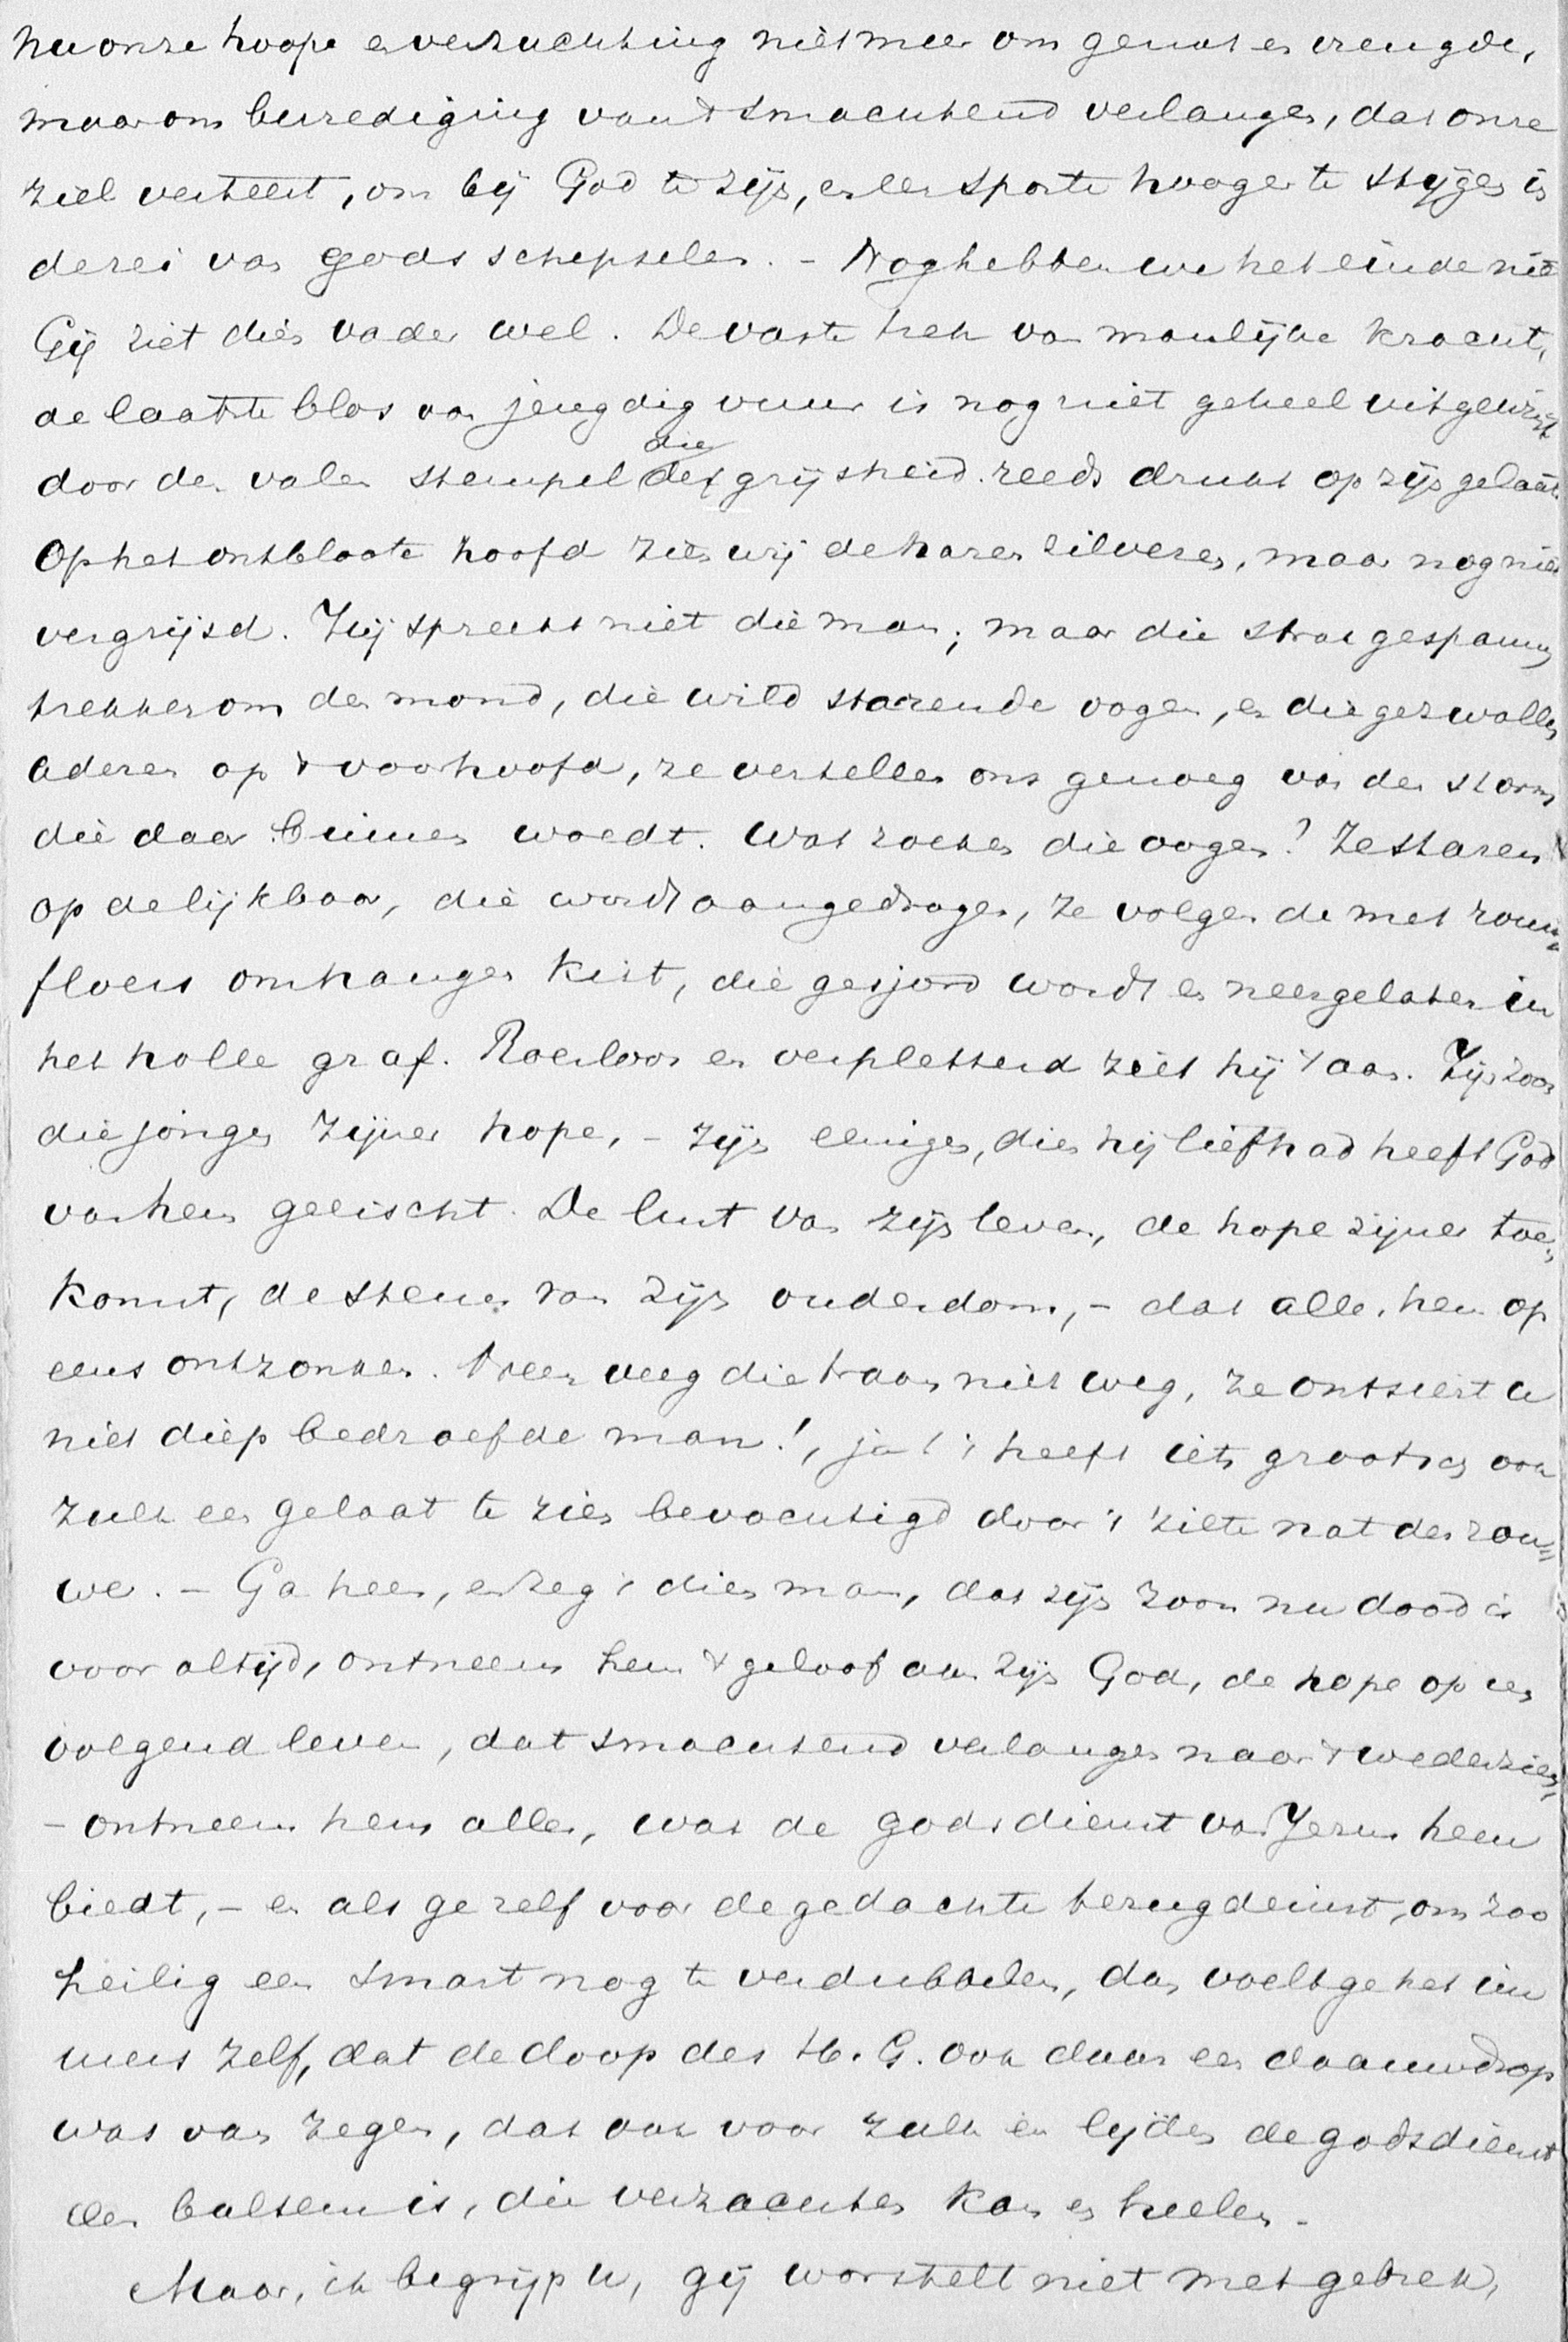 nu onze hoope en verzuchting niet meer om genot en vreugde,
maar om bevrediging van 't smachtend verlangen, dat onze
ziel verteert, om bij God te zijn, en een sporte hooger te stijgen in
de rei van gods schepselen. – Nog hebben we het einde niet
Gij ziet dien vader wel. De vaste trek van manlijke kracht,
de laatste blos van jeugdig vuur is nog niet geheel uitgewischt
door den valen stempel die des grijsheid reeds drukt op zijn gelaat.
Op het ontbloote hoofd zien wij de haren zilveren, maar nog niet
vergrijsd. Hij spreekt niet die man; maar die strak gespannen
trekken om den mond, die wild starende oogen, en die gezwollen
aderen op 't voorhoofd, ze vertellen ons genoeg van den storm
die daar binnen woedt. Wat zoeken die oogen? Ze staren
op de lijkbaar, die wordt aangedragen, ze volgen de met rouw=
floers omhangen kist, die gesjord wordt en neergelaten in
het holle graf. Roerloos en verpletterd ziet hij 't aan. Zijn zoon
die jongen zijner hope, – zijn eenigen, dien hij liefhad heeft God
van hem geeischt. De lust van zijn leven, de hope zijner toe=
komst, de steun van zijn ouderdom, – dat alles hem op
eens ontzonken. Neen veeg die traan niet weg, ze ontsiert u
niet diep bedroefde man!, ja 't heeft iets grootsch ook
zulk een gelaat te zien bevochtigd door 't zilte nat der rou=
we. – Ga heen, en zeg 't dien man, dat zijn zoon nu dood is
voor altijd, ontneem hem 't geloof aan zijn God, de hope op een
volgend leven, dat smachtend verlangen naar 't wederzien,
– ontneem hem alles, wat de godsdienst van Jezus hem
biedt, – en als ge zelf voor de gedachte terugdeinst, om zoo
heilig een smart nog te verdubbelen, dan voelt ge het im
mers zelf, dat de doop des H. G. ook daar een daauwdrop
was van zegen, dat ook voor zulk een lijden de godsdienst
een balsem is, die verzachten kan en heelen.
Maar, ik begrijp u, gij worstelt niet met gebrek,